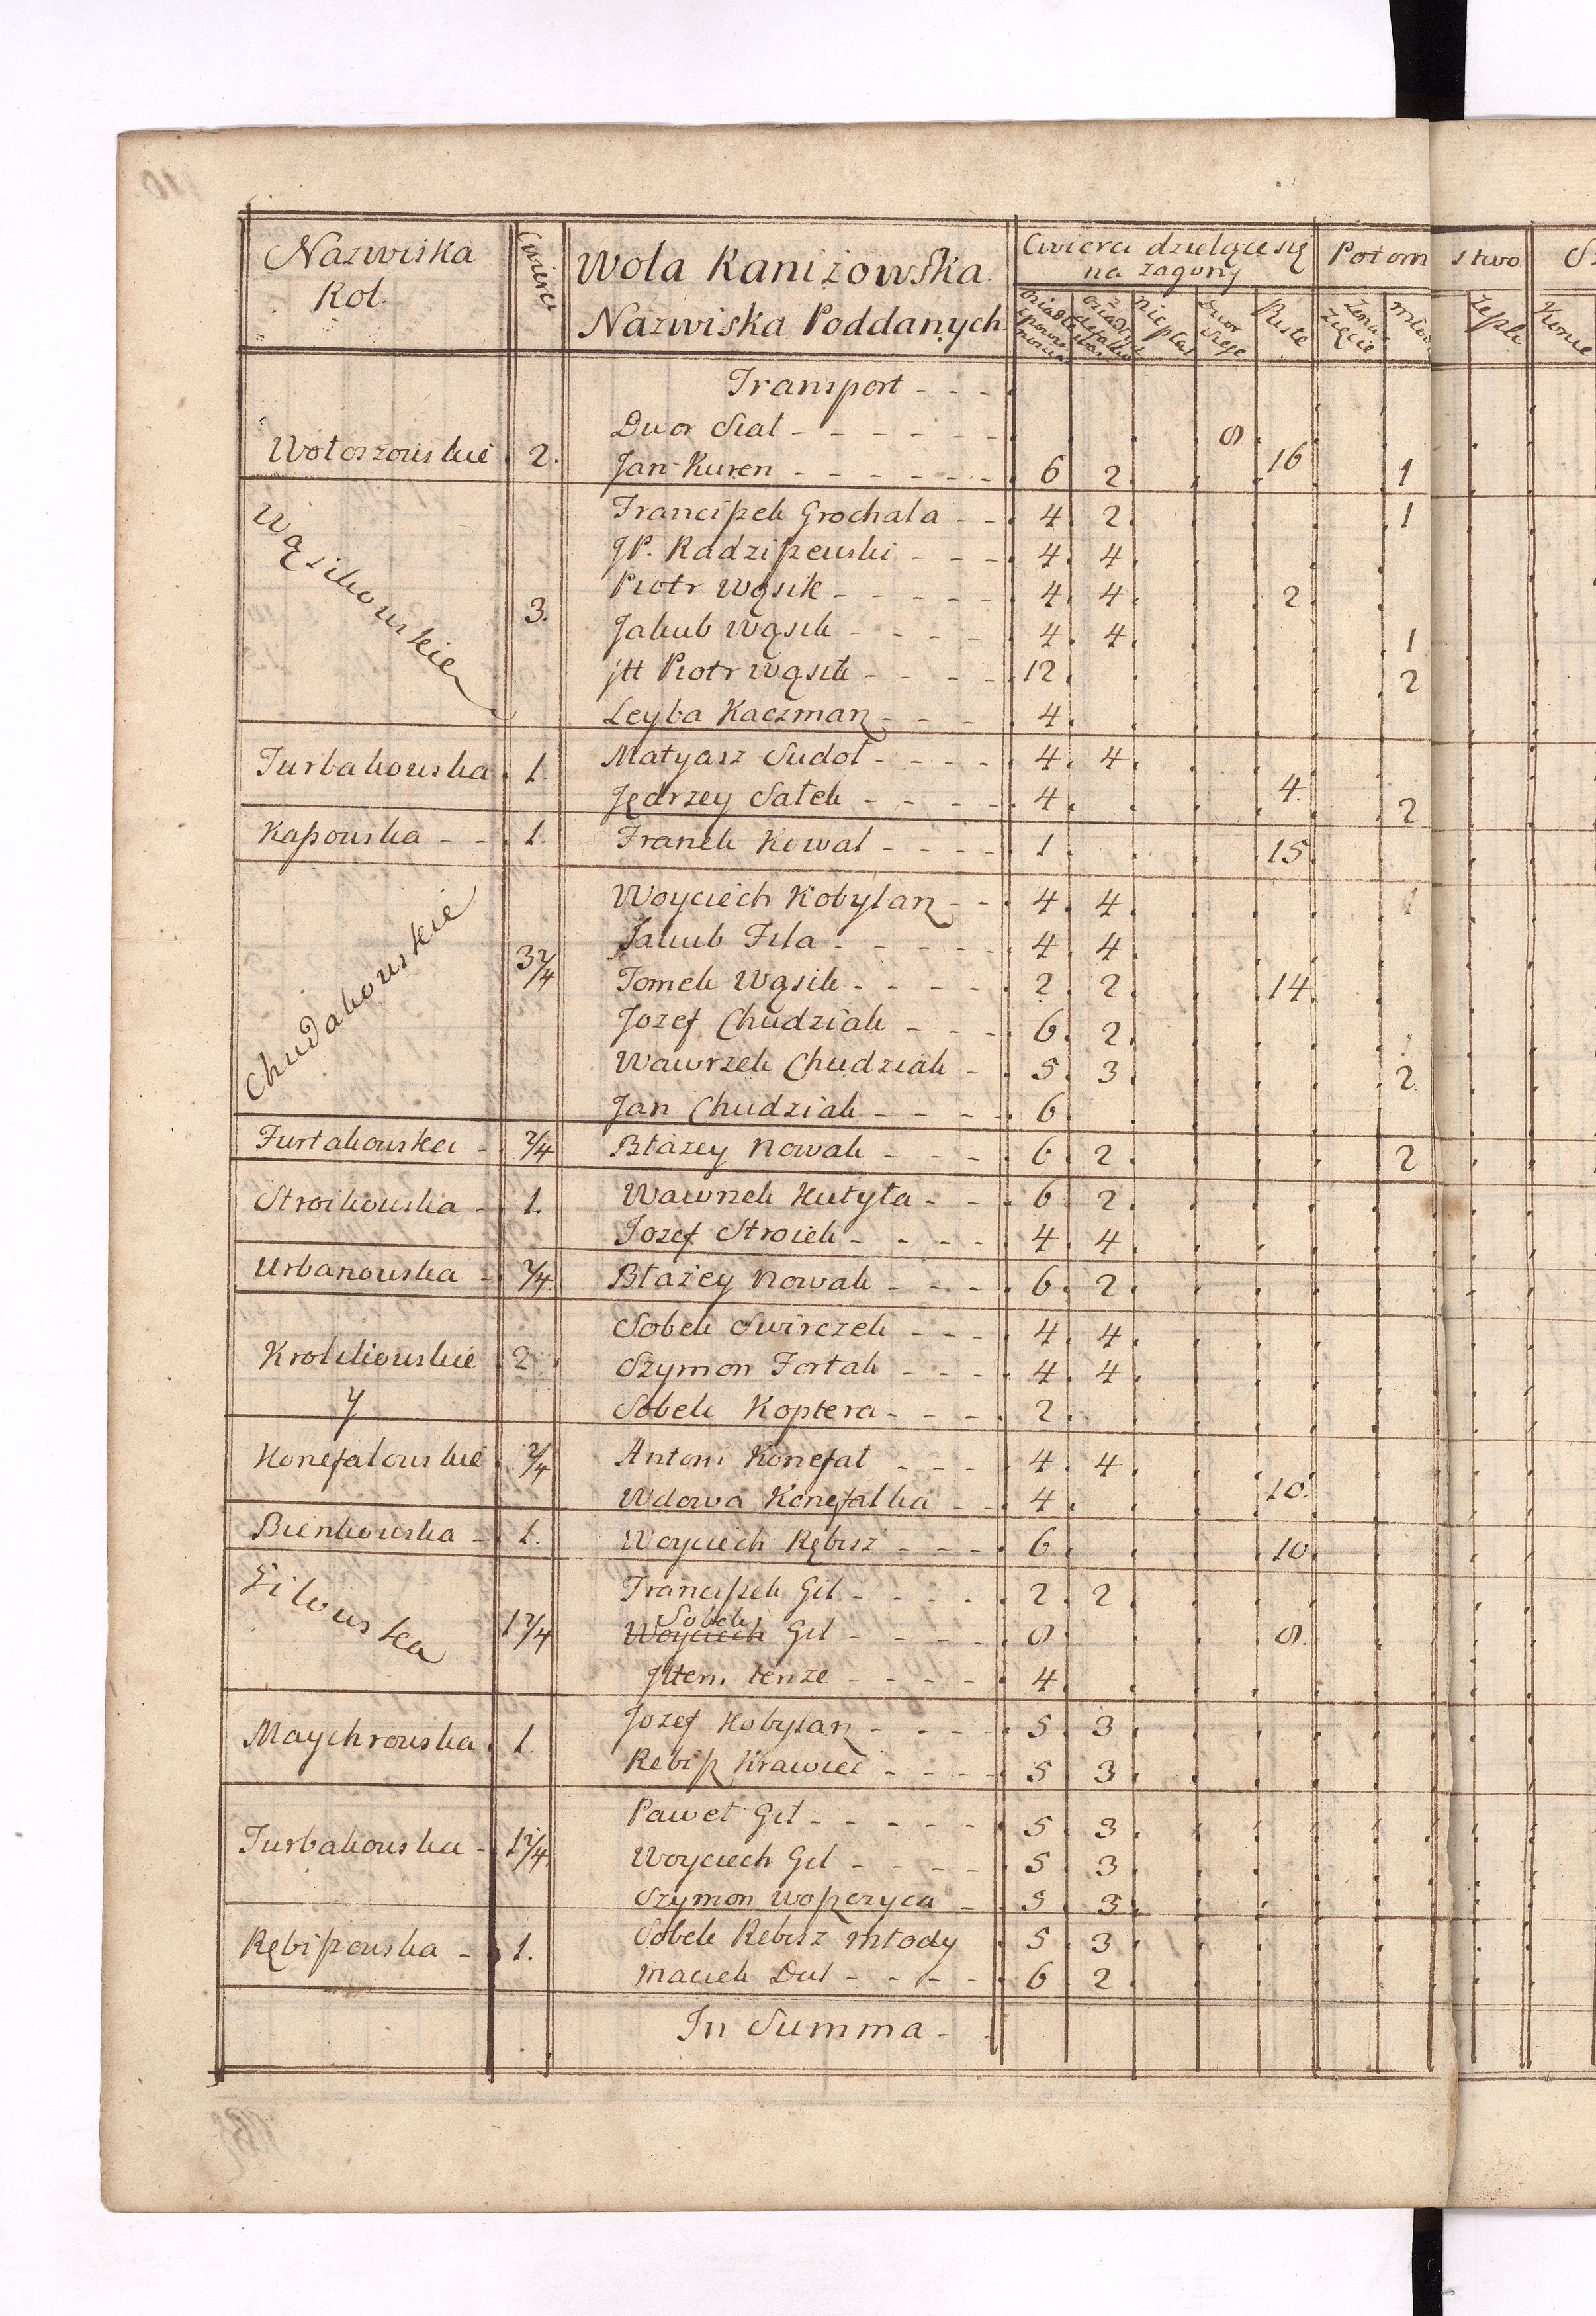 Nazwiska Rol.
Cwierci
Wola Raniżowska
Nazwiska Poddanych
Cwierci dzielące się na zagony
Potom stwo
osiadłe z powin
nieplat
Dwor sieje
Puste
Zona
zięcie
Konie
Transport - - -
Dwor Siał - - - - - - 8.
Wołoszowskie 2. Jan Kuren - - - - - - 6 2 16 1
Wąsikowskie 3. Franciszek Grochala - - 4 2 1
JP. Radziszewski - - - 4 4
Piotr Wąsik - - - - - 4 4 2
Jakub Wąsik - - - - 4 4 1
jtt Piotr Wąsik - - - - 12 2
Leyba Kaczmarz - - - 4
Turbakowska 1. Matyasz Sudoł - - - - 4 4
Jędrzey Sałek - - - - 4 4. 2
Kaszowska - - 1. Franek Kowal - - - - 1 15
Chudakowskie 3 2/4 Woyciech Kobylarz - - 4 4 1
Jakub Fila - - - - - 4 4
Tomek Wąsik - - - - 2 2 14
Jozef Chudziak - - - 6 2
Wawrzek Chudziak - 5 3 2
Jan Chudziak - - - - 6
Furtakowska - 2/4 Błażey Nowak - - - 6 2 2
Stroikowska - 1. Wawrzek Kutyła - - - 6 2
Jozef Stroiek - - - - 4 4
Urbanowska - 2/4. Błażey Nowak - - - - 6 2
Krolikowskie 2 Sobek Swirczek - - - 4 4
y Szymon Fortak - - - 4 4
Sobek Koptera - - - 2
Konefałowskie 2/4 Antoni Konefał - - - 4 4
Wdowa Konefałka - - 4 10.
Bienkowska - 1. Woyciech Rębisz - - - 6 10
Gilowska 1 2/4 Franciszek Gil - - - - 2 2
Sobek
Woyciech Gil - - - - 8 8.
Jttem tenże - - - - 4
Maychrowska 1. Jozef Kobylarz - - - - 5 3
Rebisz Krawiec - - - - 5 3
Turbakowska - 1 2/4. Paweł Gil - - - - - 5 3
Woyciech Gil - - - - 5 3
Szymon Woszczyca - 5 3
Rębiszowska - 1. Sobek Rebisz młody 5 3
Maciek Dul - - - - 6 2
In Summa -